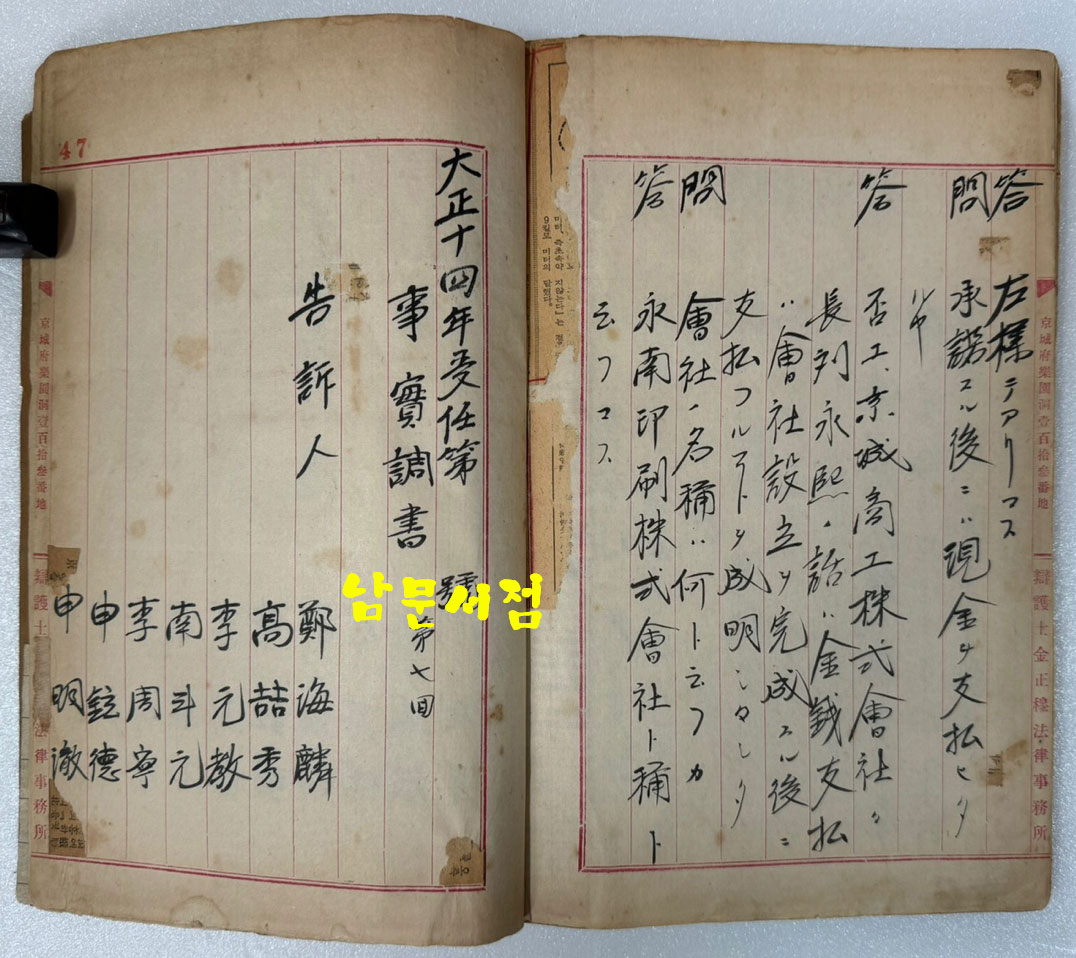 答 左樣テアリマス
問 承諾スル後ニハ現金ヲ支払ヒタ
ハ 
答 否エ、京城商工株式會社々
長刋永熙ノ話ハ金戔支払
ハ會社設立ヲ完成スル後ニ
支払フルコトヲ成明シマシタ
問 會社ノ名稱ハ何ト云フカ
答 永南印刷株式會社ト稱ト
云フマス
京城府樂園洞壹百拾叁番地
辯護士金正穆法律事務所
大正十四年受任第 號
事實調書 第七回
告訴人 鄭海麟
高喆秀
李元教
南斗元
李周寧
申鉉德
申明澈
47
京城府樂園洞壹百拾叁番地
辯護士 法律事務所
남문서점